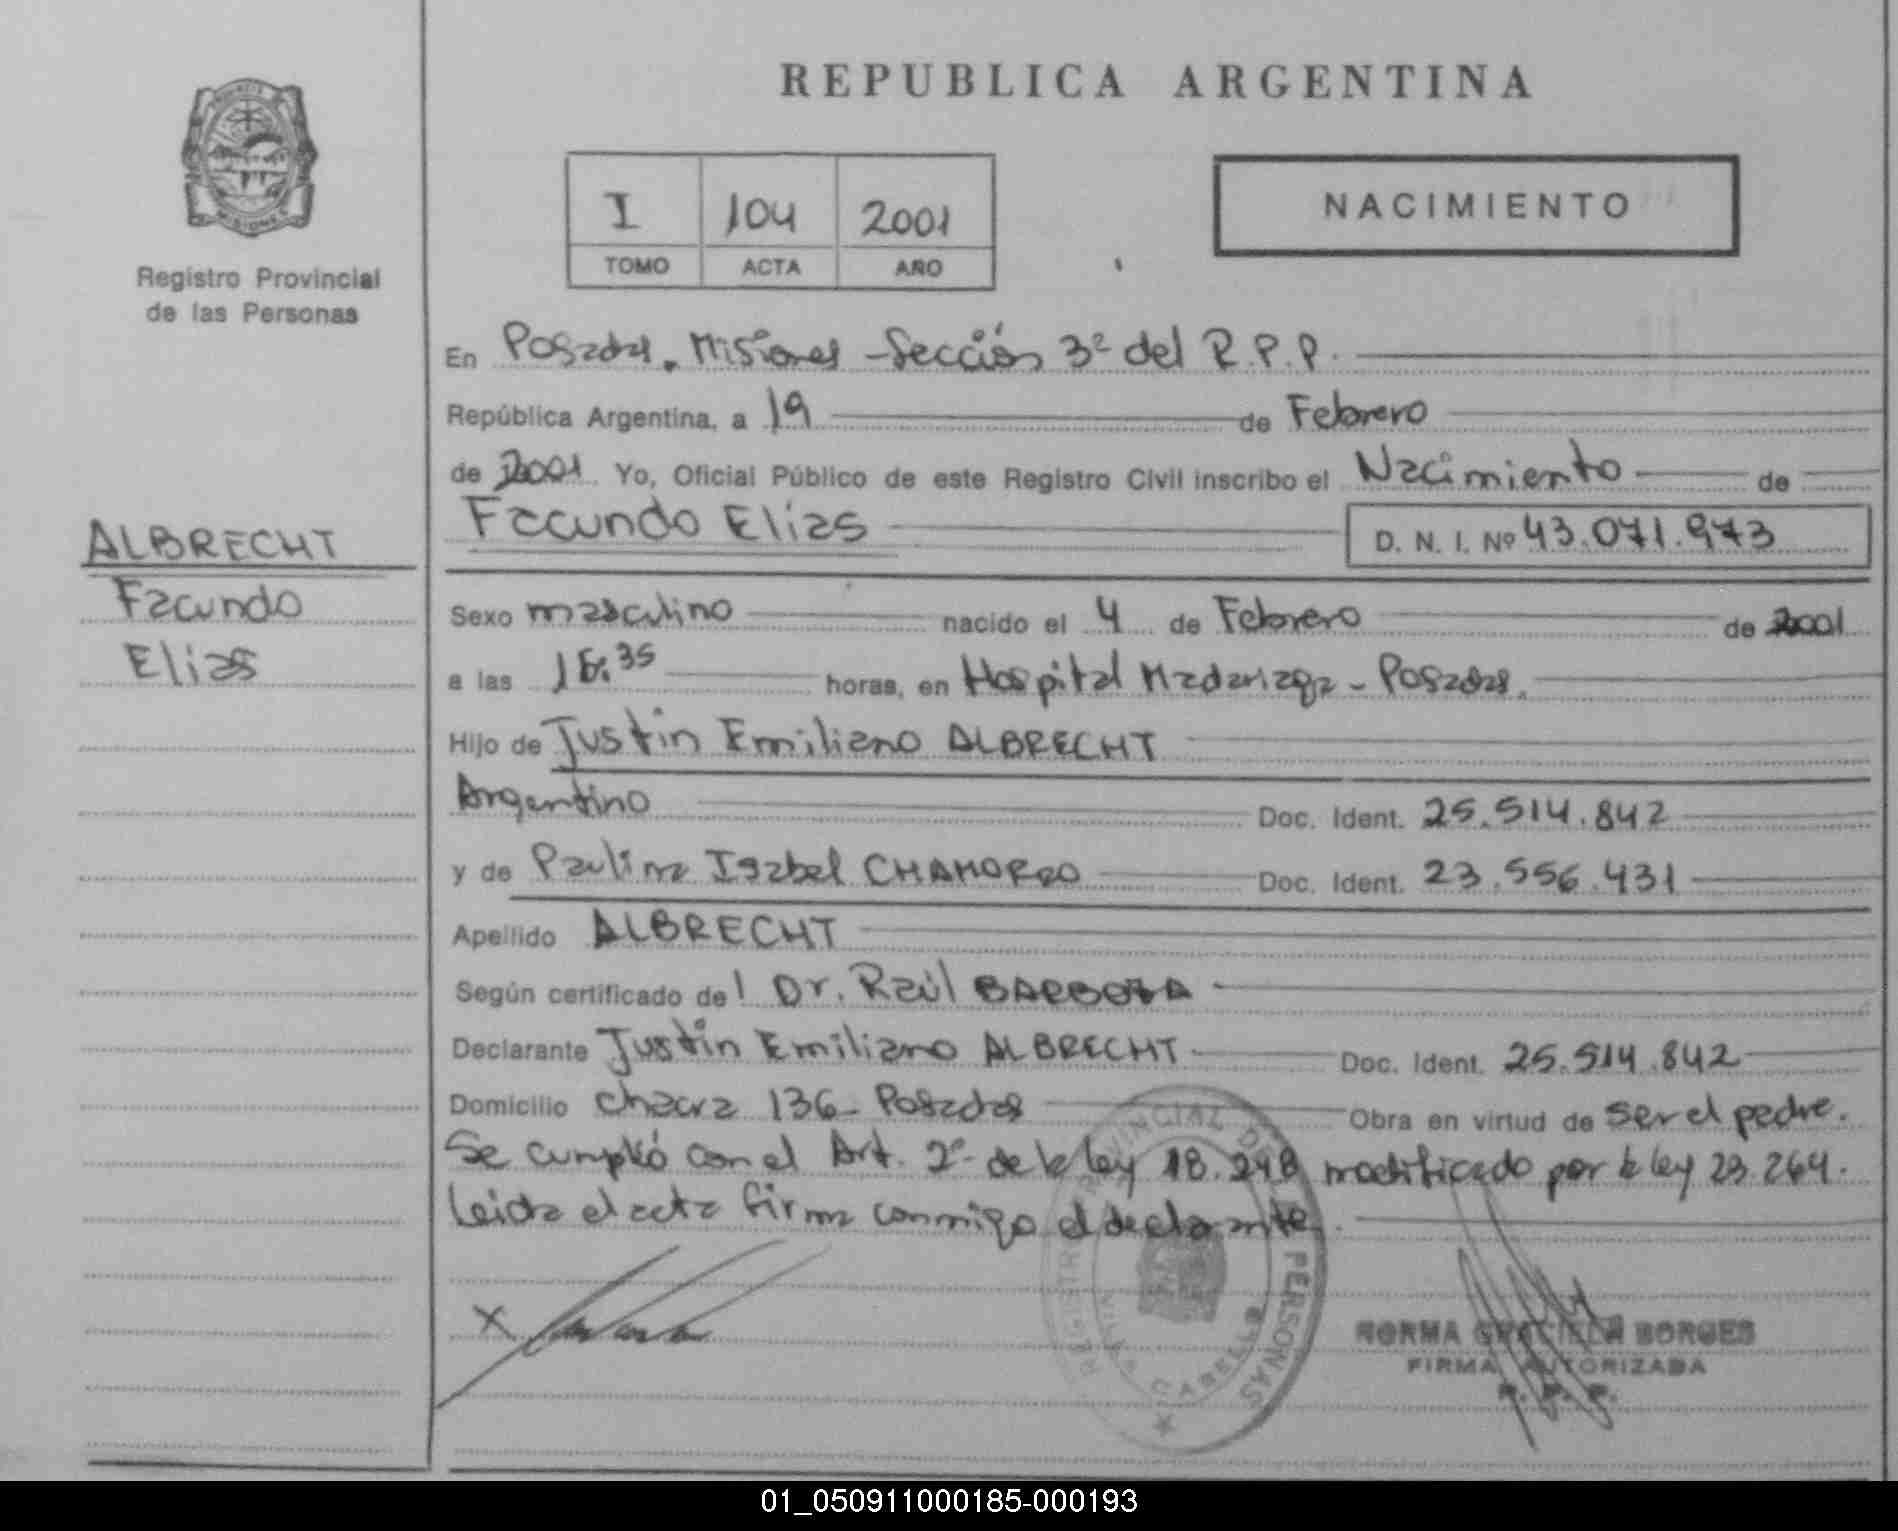 REPUBLICA ARGENTINA
PROVINCIA
MISIONES
Registro Provincial
de las Personas
I 104 2001
TOMO ACTA AÑO
NACIMIENTO
En Posadas. Misiones - Sección 3º del R.P.P.
República Argentina, a 19 de Febrero
de 2001 Yo, Oficial Público de este Registro Civil inscribo el Nacimiento de
Facundo Elias D. N. I. Nº 43.071.973
ALBRECHT
Facundo
Elias
Sexo masculino nacido el 4 de Febrero de 2001
a las horas, en Hospital Madariaga - Posadas.
Hijo de Justin Emiliano ALBRECHT
Argentino Doc. Ident. 25.514.842
y de Paulina Isabel CHAMORRO Doc. Ident. 23.556.431
Apellido ALBRECHT
Según certificado de: Dr. Raúl BARBOZA
Declarante Justin Emiliano ALBRECHT Doc. Ident. 25.514.842
Domicilio Chacra 136 - Posadas Obra en virtud de ser el padre.
Se cumplió con el Art. 2º de la ley 18.248 modificado por la ley 23.264.
Leida el acta firma conmigo el declarante.
X
REGISTRO PROVINCIAL DE PERSONAS
CABELLO
NORMA GRACIELA BORGES
FIRMA AUTORIZADA
R. P. P.
01_050911000185-000193